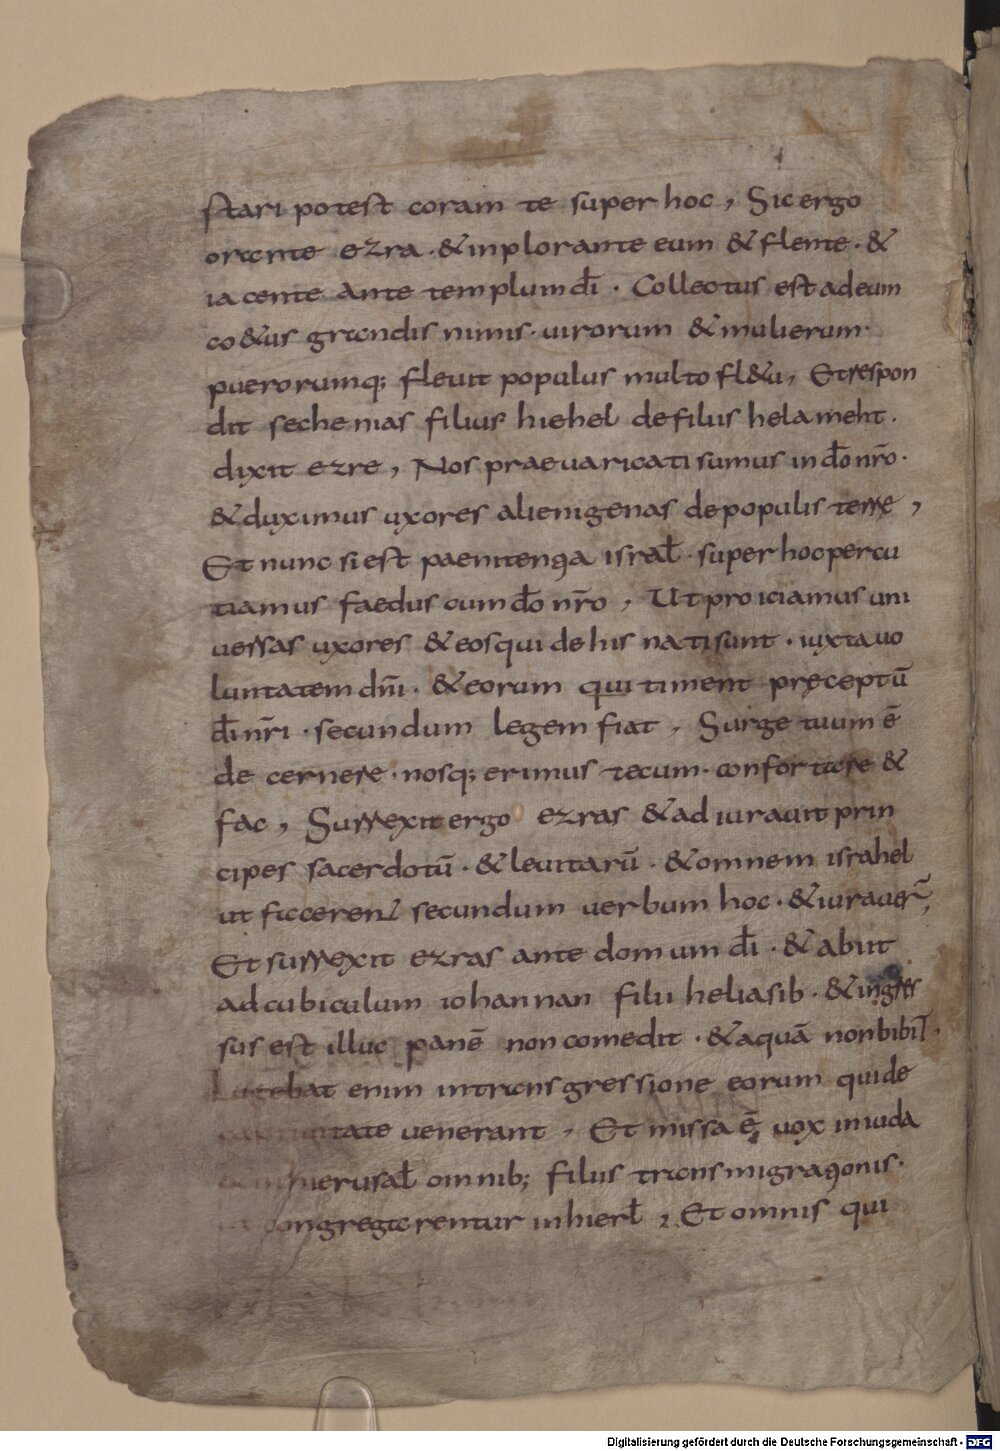 stari potest coram te super hoc, Sic ergo
orante ezra · & inplorante eum & flente · &
iacente ante templum dī · Collectus est ad eum
co&us grandis nimis · uirorum & mulierum ·
puerorumq; fleuit populus multo fl&u, Et respon
dit sechenias filius hiehel de filiis helameht ·
dixit ezre, Nos praeuaricati sumus in dō nr̄o ·
& duximus uxores alienigenas de populis terrę,
Et nunc si est paenitentia israł · super hoc percu
tiamus faedus cum dō nr̄o, Ut proiciamus uni
uersas uxores & eos qui de his nati sunt · iuxta uo
luntatem dn̄i · & eorum qui timent pręceptū
dī nr̄i · secundum legem fiat, Surge tuum ē
decernere · nosq; erimus tecum · confortare &
fac, Surrexit ergo ezras & adiurauit prin
cipes sacerdotū · & leuitarū · & omnem israhel
ut facerent secundum uerbum hoc · & iurauer̄,
Et surrexit ezras ante domum dī · & abiit
ad cubiculum iohannan filii heliasib · & ingres
sus est illuc panē non comedit · & aquā non bibit ·
Lugebat enim in transgressione eorum qui de
captiuitate uenerant, Et missa ē uox in iuda
hierusał omnib; filiis transmigrationis ·
congregarentur in hierł, Et omnis qui
Digitalisierung gefördert durch die Deutsche Forschungsgemeinschaft - DFG